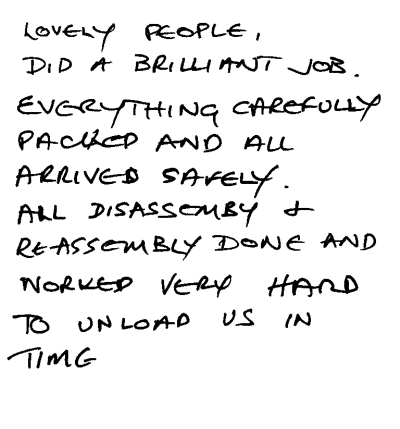 LOVELY PEOPLE,
DID A BRILLIANT JOB.
EVERYTHING CAREFULLY
PACKED AND ALL
ARRIVED SAFELY.
ALL DISASSEMBY &
RE-ASSEMBLY DONE AND
WORKED VERY HARD
TO UNLOAD US IN
TIME